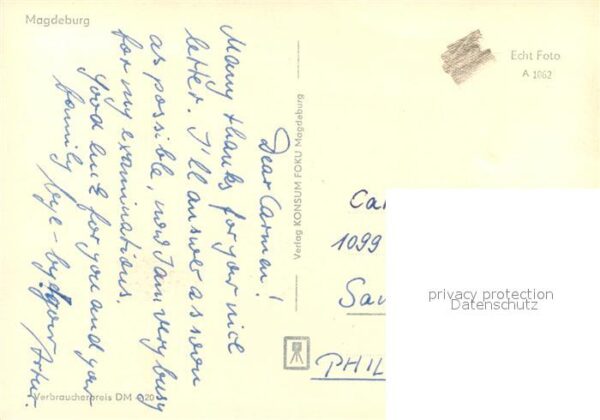 Magdeburg
Dear Carmen!
Many thanks for your nice
letter. I'll answer as soon
as possible, now I am very busy
for my examinations.
Good luck for you and your
family bye-bye your Artur.
Verlag KONSUM FOKU Magdeburg
Echt Foto
A 1062
1099
PHIL
privacy protection
Datenschutz
Verbraucherpreis DM 0,20